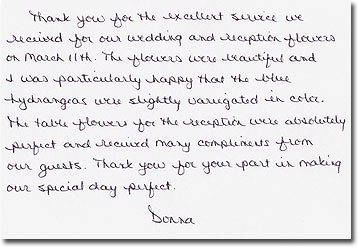 Thank you for the excellent service we
received for our wedding and reception flowers
on March 11th. The flowers were beautiful and
I was particularly happy that the blue
hydrangeas were slightly varigated in color.
The table flowers for the reception were absolutely
perfect and received many compliments from
our guests. Thank you for your part in making
our special day perfect.
Donna